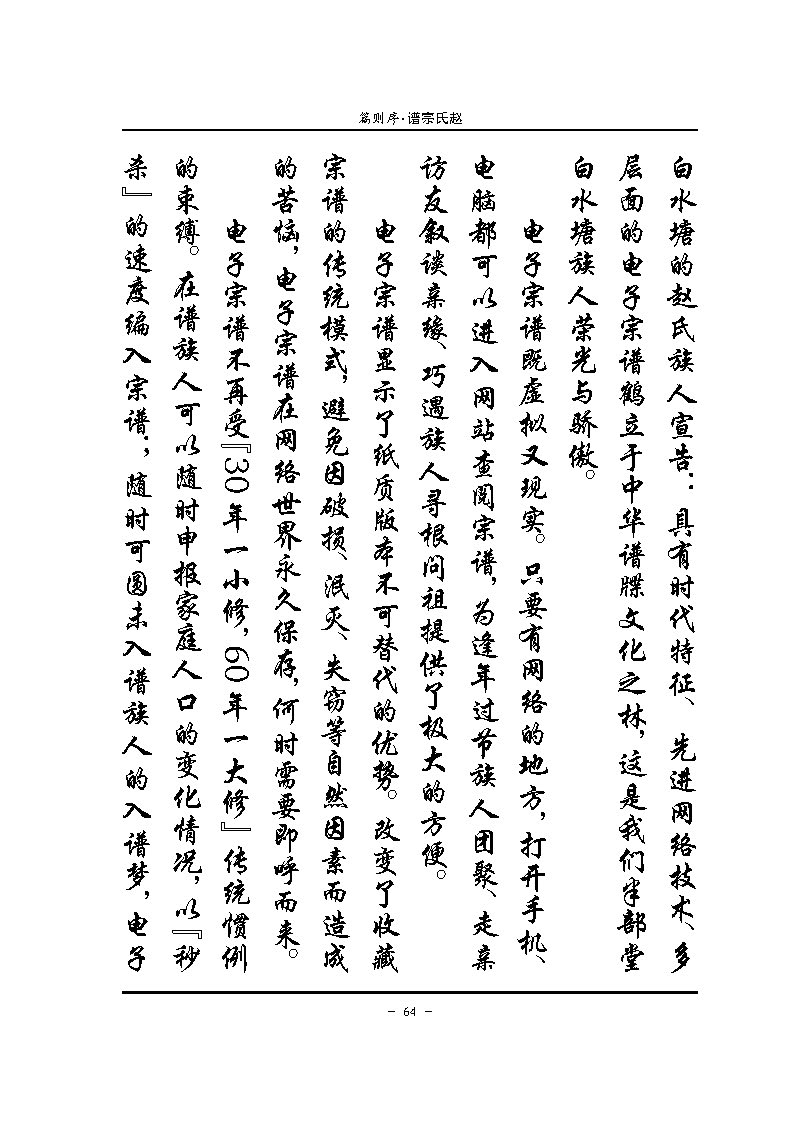 篇则序·谱宗氏赵
白水塘的赵氏族人宣告：具有时代特征、先进网络技术、多
层面的电子宗谱鹤立于中华谱牒文化之林，这是我们半部堂
白水塘族人荣光与骄傲。
电子宗谱既虚拟又现实。只要有网络的地方，打开手机、
电脑都可以进入网站查阅宗谱，为逢年过节族人团聚、走亲
访友叙谈亲缘、巧遇族人寻根问祖提供了极大的方便。
电子宗谱显示了纸质版本不可替代的优势。改变了收藏
宗谱的传统模式，避免因破损、泯灭、失窃等自然因素而造成
的苦恼，电子宗谱在网络世界永久保存，何时需要即呼而来。
电子宗谱不再受『30年一小修，60年一大修』传统惯例
的束缚。在谱族人可以随时申报家庭人口的变化情况，以『秒
杀』的速度编入宗谱；随时可圆未入谱族人的入谱梦，电子
- 64 -